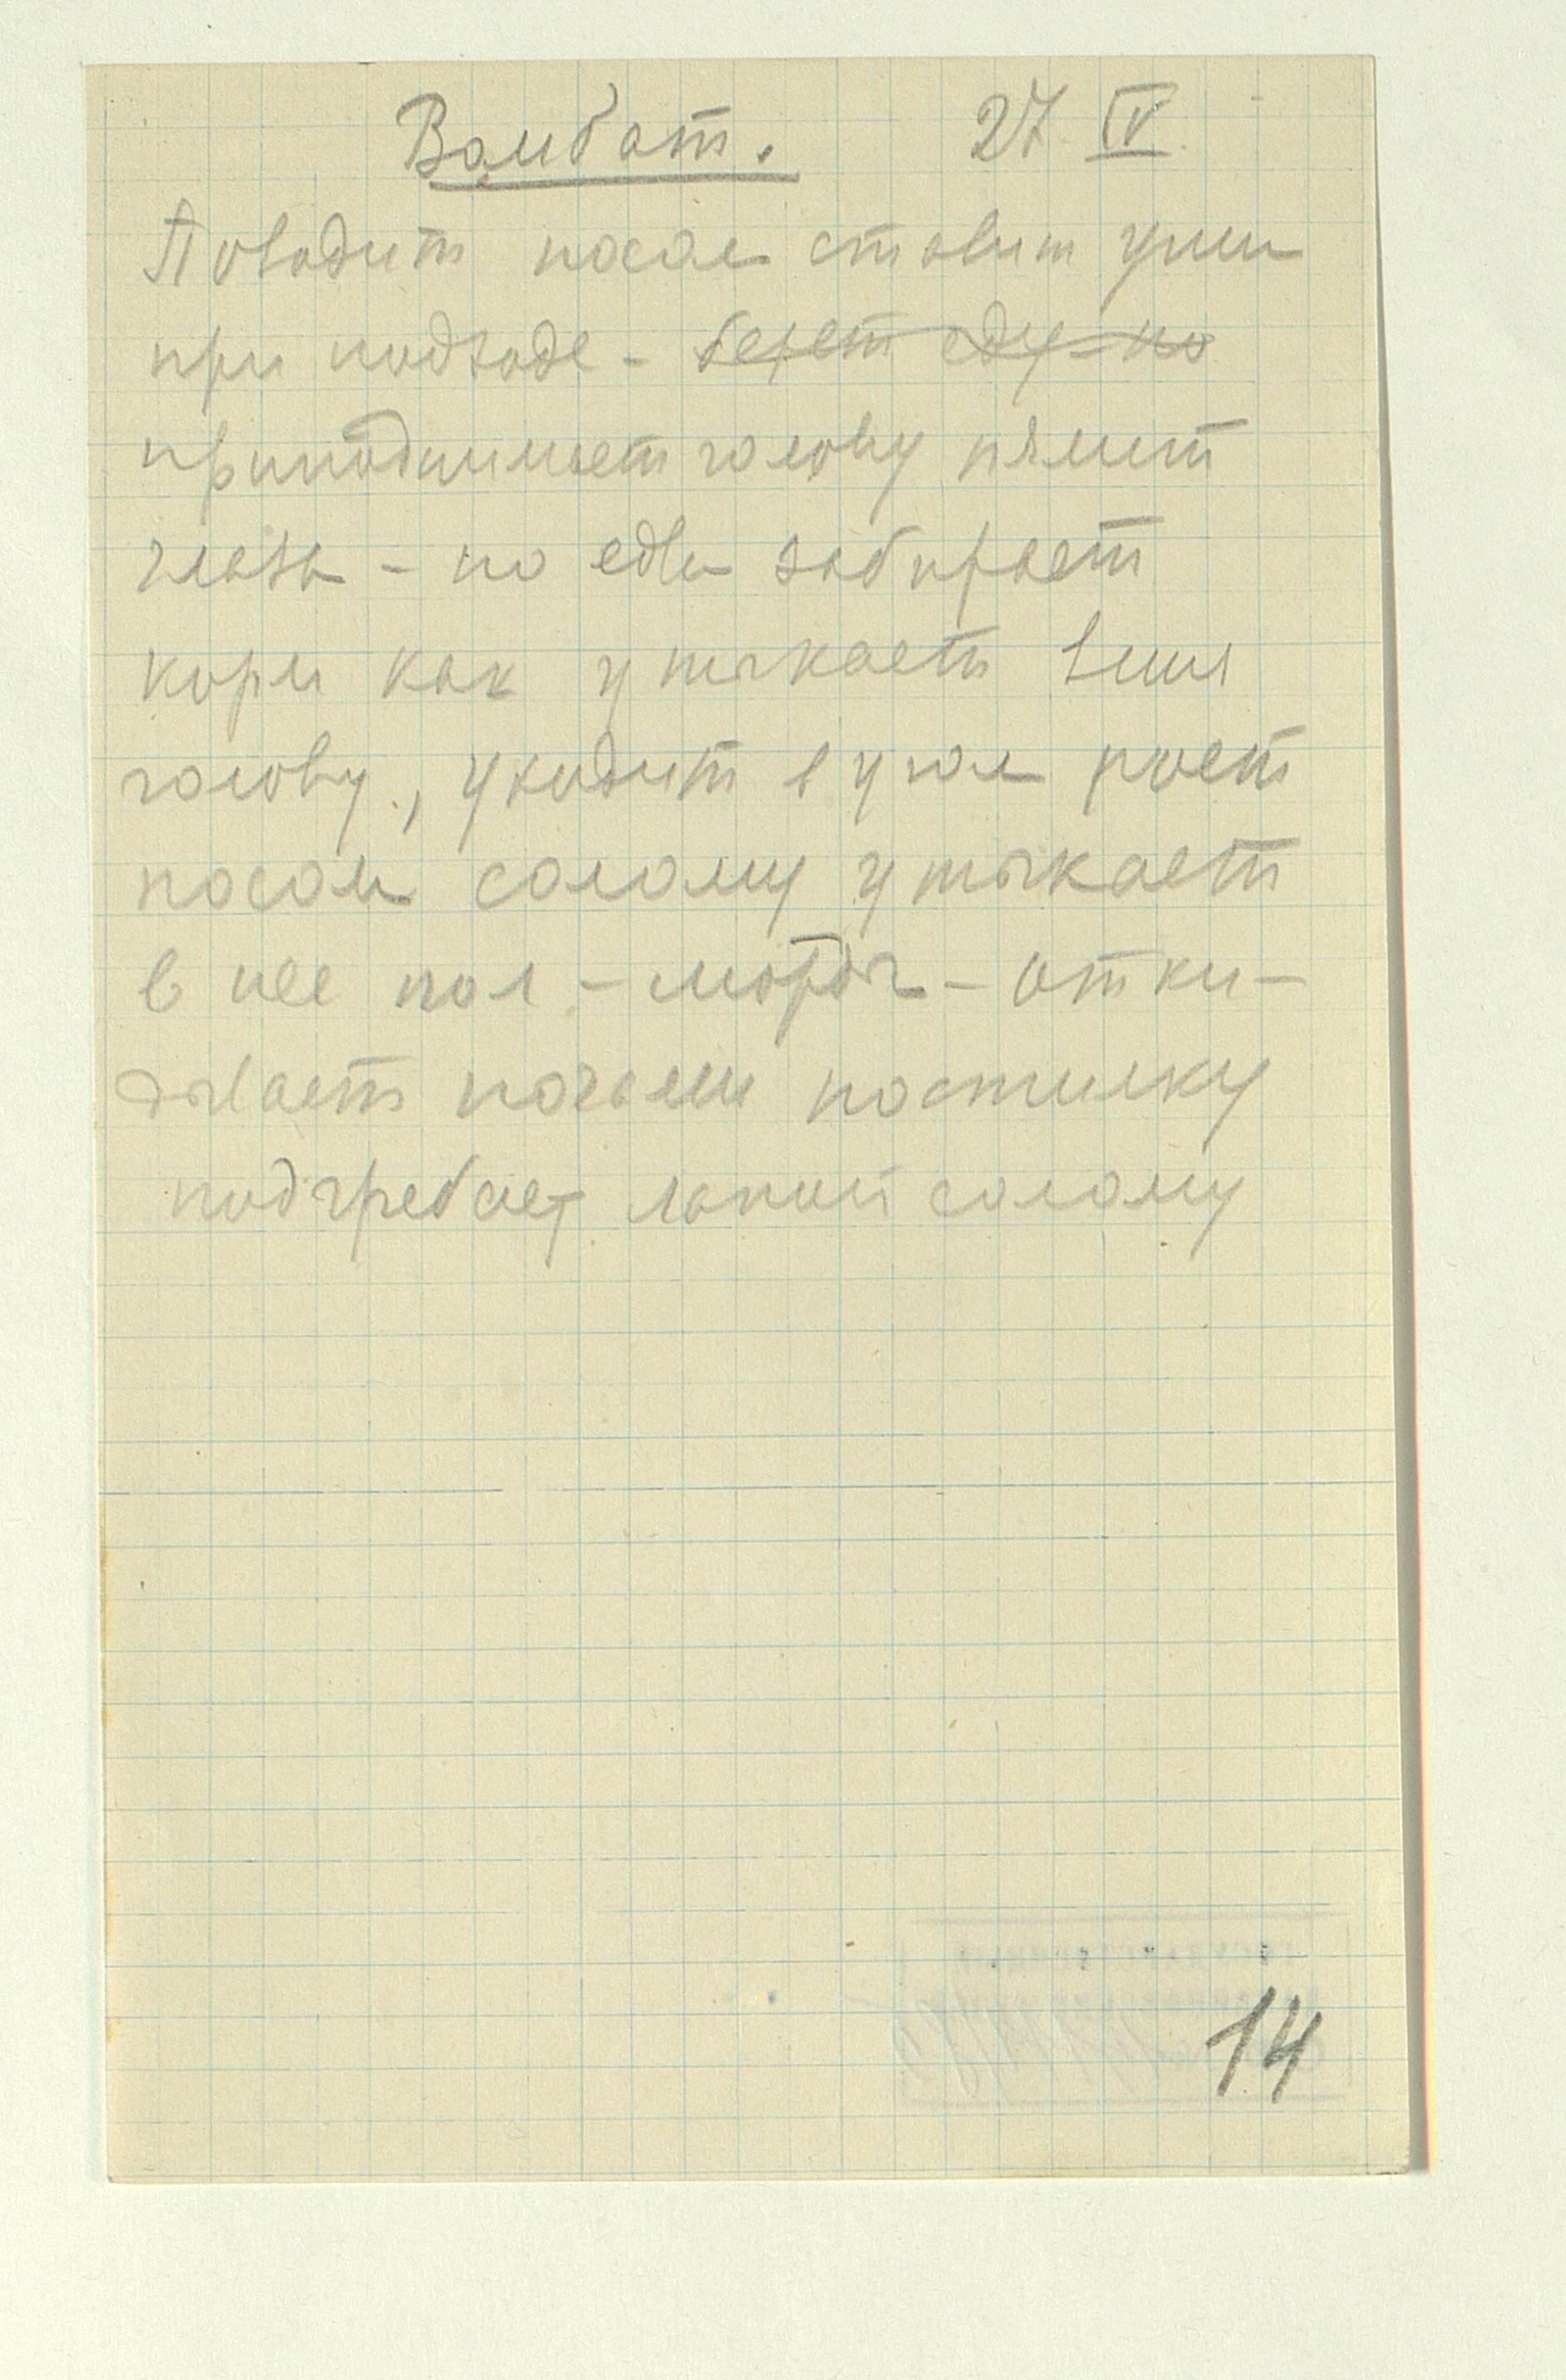 Вомбат. 27 IV
Поводит носом ставит уши
при подходе – берет еду но
приподнимает голову пялит
глаза – но едва забирает
корм как утыкает вниз
голову, уходит в угол роет
носом солому утыкает
в нее пол – морды – отки-
дывает ногами постилку
подгребает лапой солому
14